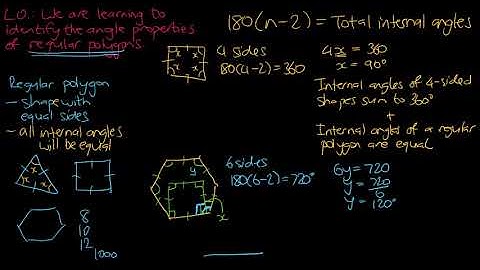 L.O.: We are learning to
identify the angle properties
of regular polygons.
180(n-2) = Total internal angles
Regular polygon
- shape with
equal sides
- all internal angles
will be equal
x x
x x
4 sides
180(4-2)=360
4x = 360
x = 90°
Internal angles of 4-sided
shapes sum to 360°
+
Internal angles of a regular
polygon are equal
x
x x
8
10
12
1000
y
x
6 sides
180(6-2)=720°
6y=720
y = 720/6
y = 120°